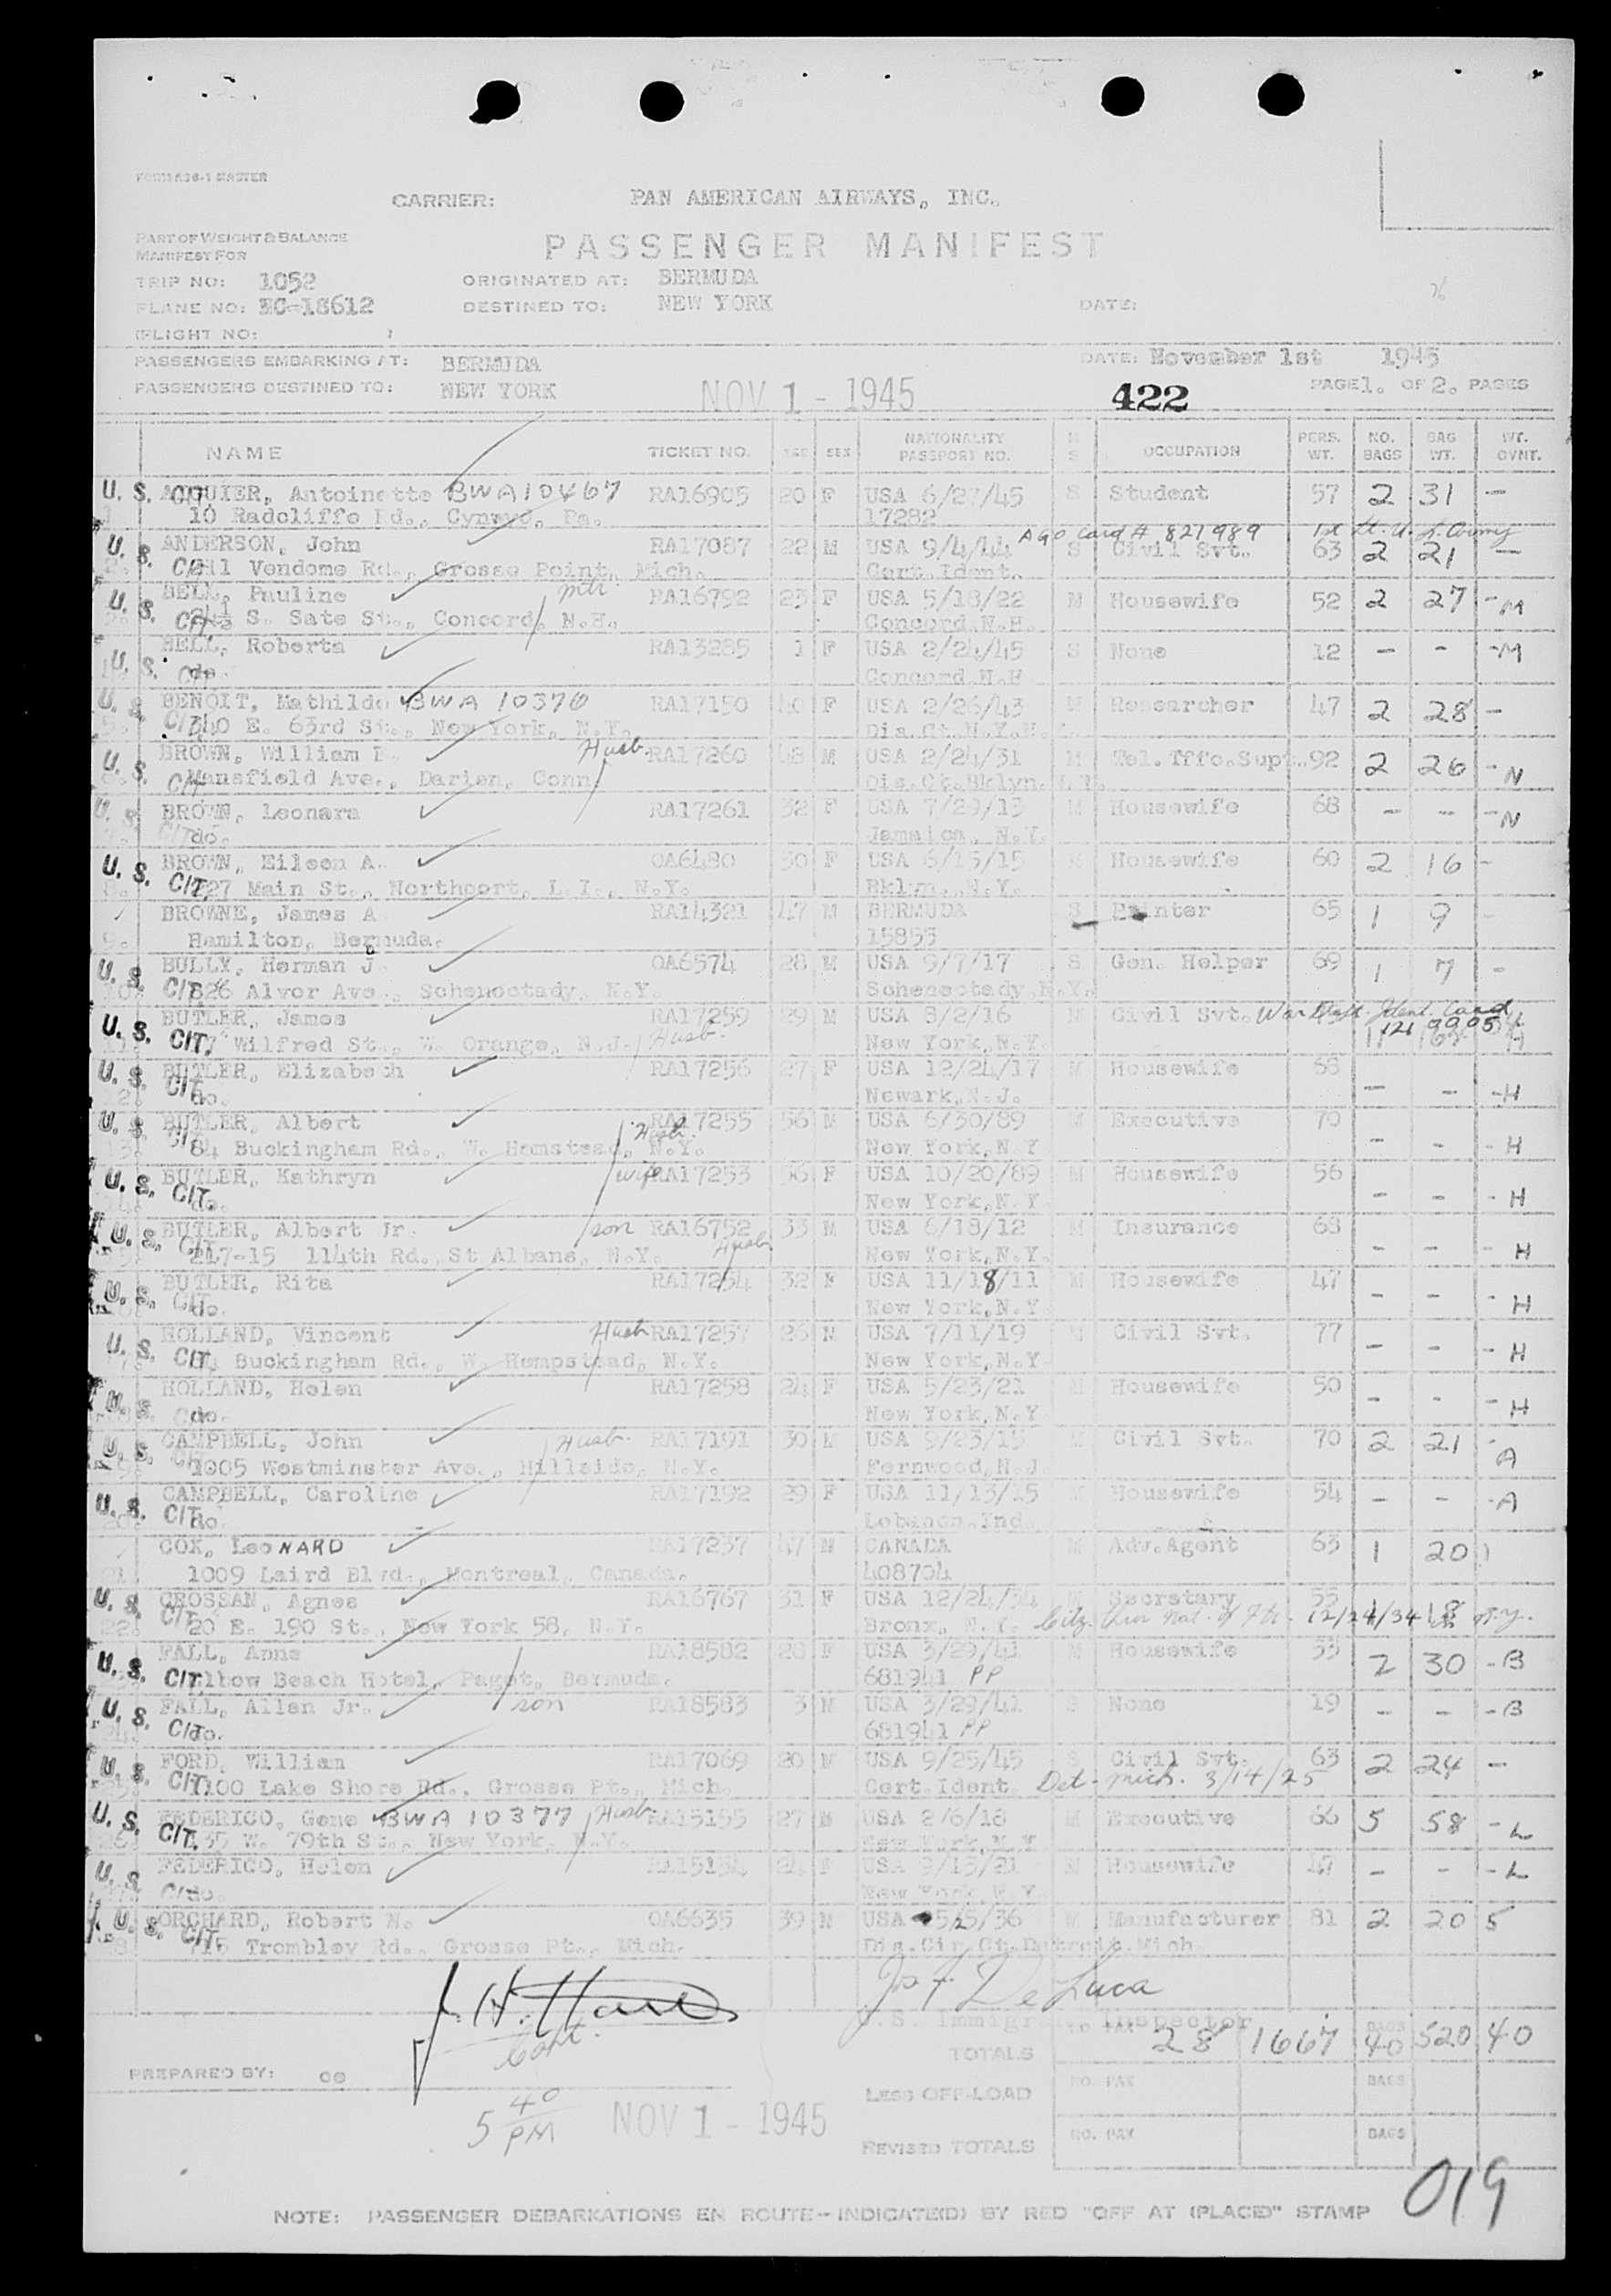 FORM A26-1 MASTER
CARRIER: PAN AMERICAN AIRWAYS, INC.
PART OF WEIGHT & BALANCE
MANIFEST FOR
PASSENGER MANIFEST
TRIP NO: 1052 ORIGINATED AT: BERMUDA
PLANE NO: NC-18612 DESTINED TO: NEW YORK DATE:
FLIGHT NO:
PASSENGERS EMBARKING AT: BERMUDA DATE: November 1st 1945
PASSENGERS DESTINED TO: NEW YORK NOV 1 - 1945 422 PAGE 1. OF 2. PAGES
NAME TICKET NO. AGE SEX NATIONALITY PASSPORT NO. M S OCCUPATION PERS. WT. NO. BAGS BAG WT. WT. OVNT.
U. S. CIT. Antoinette BWA10467 RA16905 20 F USA 6/27/45 S Student 57 2 31 -
10 Radcliffe Rd., Cynwyd, Pa. 17282
AGO Card # 821989 1st Lt. U. S. Army
U. S. ANDERSON, John RA17087 22 M USA 9/4/44 S Civil Svt. 63 2 21 -
CIT. Vendome Rd., Grosse Point, Mich. Cert. Ident.
U. S. BELL, Pauline RA16792 23 F USA 5/18/22 M Housewife 52 2 27 - M
CIT. S. Sate St., Concord, N.H. Concord, N.H.
BELL, Roberta RA13285 1 F USA 2/24/45 S None 12 - - - M
U. S. CIT. do. Concord, N.H
U. S. BENOIT, Mathilde BWA 10376 RA17150 40 F USA 2/26/43 M Researcher 47 2 28 -
CIT. 340 E. 63rd St., New York, N.Y. Dis. Ct. N.Y.N.Y.
U. S. BROWN, William Husb. RA17260 48 M USA 2/24/31 M Tel. Tffc. Supt. 92 2 26 - N
CIT. Mansfield Ave., Darien, Conn. Dis. Ct. Bklyn. N.Y.
U. S. BROWN, Leonara RA17261 32 F USA 7/29/13 M Housewife 68 - - - N
CIT. do. Jamaica, N.Y.
U. S. BROWN, Eileen A. OA6480 30 F USA 6/15/15 M Housewife 60 2 16 -
CIT. 27 Main St., Northport, L.I., N.Y. Bklyn., N.Y.
BROWNE, James A RA14321 47 M BERMUDA S Painter 65 1 9 -
9. Hamilton, Bermuda. 15855
U. S. BULLY, Herman J. OA6574 28 M USA 9/7/17 S Gen. Helper 69 1 7 -
CIT. 826 Alvor Ave., Schenectady, N.Y. Schenectady, N.Y.
U. S. BUTLER, James RA17259 29 M USA 8/2/16 M Civil Svt. War Dept. Ident. Card
CIT. Wilfred St., W. Orange, N.J. Husb. New York, N.Y. H
U. S. BUTLER, Elizabeth RA17256 27 F USA 12/24/17 M Housewife 58 - - - H
CIT. do. Newark, N.J.
U. S. BUTLER, Albert RA17255 56 M USA 6/30/89 M Executive 70 - - - H
CIT. 84 Buckingham Rd., W. Hemstead, N.Y. Husb. New York, N.Y
U. S. BUTLER, Kathryn wife RA17253 56 F USA 10/20/89 M Housewife 56 - - - H
CIT. do. New York, N.Y
U. S. BUTLER, Albert Jr. son RA16752 33 M USA 6/18/12 M Insurance 68 - - - H
CIT. 217-15 114th Rd., St Albans, N.Y. Husb New York, N.Y.
U. S. BUTLER, Rita RA17254 32 F USA 11/18/11 M Housewife 47 - - - H
CIT. do. New York, N.Y
U. S. HOLLAND, Vincent Husb RA17257 26 M USA 7/11/19 M Civil Svt. 77 - - - H
CIT. Buckingham Rd., W. Hempstead, N.Y. New York, N.Y
U. S. HOLLAND, Helen RA17258 24 F USA 5/23/21 M Housewife 50 - - - H
do. New York, N.Y
U. S. CAMPBELL, John Husb. RA17191 30 M USA 9/23/15 M Civil Svt. 70 2 21 - A
CIT. 1005 Westminster Ave., Hillside, N.Y. Fernwood, N.J.
U. S. CAMPBELL, Caroline RA17192 29 F USA 11/13/15 M Housewife 54 - - - A
CIT. do. Lebanon, Ind.
COX, LeoNARD RA17237 47 M CANADA M Adv. Agent 63 1 20
21. 1009 Laird Blvd., Montreal, Canada. 408704
U. S. CROSSAN, Agnes RA16767 31 F USA 12/24/34 M Secretary 55
CIT. 20 E. 190 St., New York 58, N.Y. Bronx, N.Y. Citz. thru Nat. of Fth. 12/24/34 N.Y.
U. S. FALL, Anne RA18582 28 F USA 3/29/41 M Housewife 53 2 30 - B
CIT. Elbow Beach Hotel, Paget, Bermuda. 681941 PP
U. S. FALL, Allen Jr. son RA18583 3 M USA 3/29/41 S None 19 - - - B
CIT. do. 681941 PP
U. S. FORD, William RA17069 20 M USA 9/25/45 S Civil Svt. 63 2 24 -
CIT. 1100 Lake Shore Rd., Grosse Pt., Mich. Cert. Ident. Det. Mich. 3/14/25
U. S. FEDERICO, Gene BWA 10377 Husb RA15155 27 M USA 2/6/18 M Executive 66 5 58 - L
CIT. 35 W. 79th St., New York, N.Y. New York, N.Y
U. S. FEDERICO, Helen RA15154 24 F USA 9/13/21 M Housewife 47 - - - L
CIT. do. New York, N.Y.
U. S. ORCHARD, Robert W. OA6635 39 M USA 5/5/36 M Manufacturer 81 2 20 5
CIT. 715 Trombley Rd., Grosse Pt., Mich. Dis. Cir. Ct. Detroit, Mich.
Jos F. De Luca
U.S. Immigrant Inspector
Capt.
TOTALS NO. PAX 28 1667 BAGS 40 520 40
PREPARED BY: 
LESS OFF-LOAD NO. PAX BAGS
5 40 PM NOV 1 - 1945
REVISED TOTALS NO. PAX BAGS
019
NOTE: PASSENGER DEBARKATIONS EN ROUTE - INDICATE(D) BY RED "OFF AT (PLACE)" STAMP